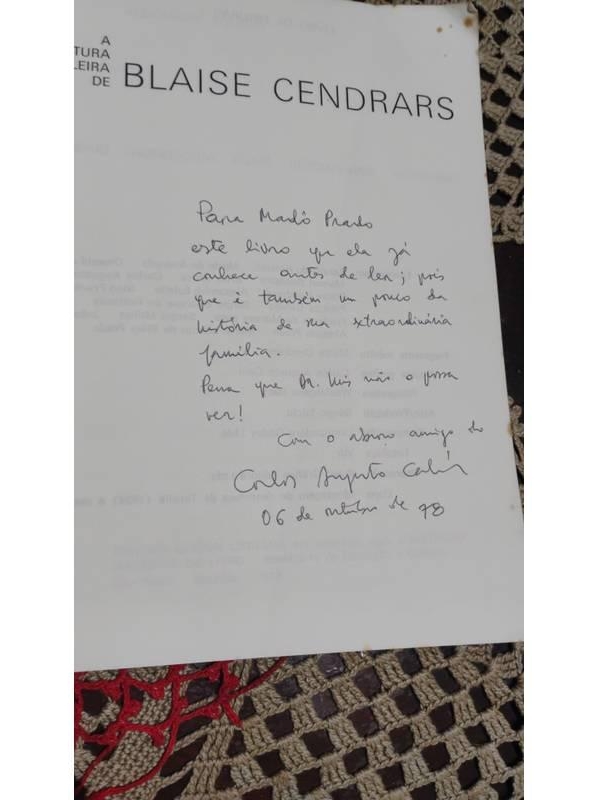 A
TURA
LEIRA
DE
BLAISE CENDRARS
Para Marlô Prado
este livro que ela já
conhece antes de ler; pois
que é também um pouco da
história de sua extraordinária
família.
Pena que Dr. Luis não o possa
ver!
Com o abraço amigo do
Carlos Augusto Calil
06 de outubro de 78